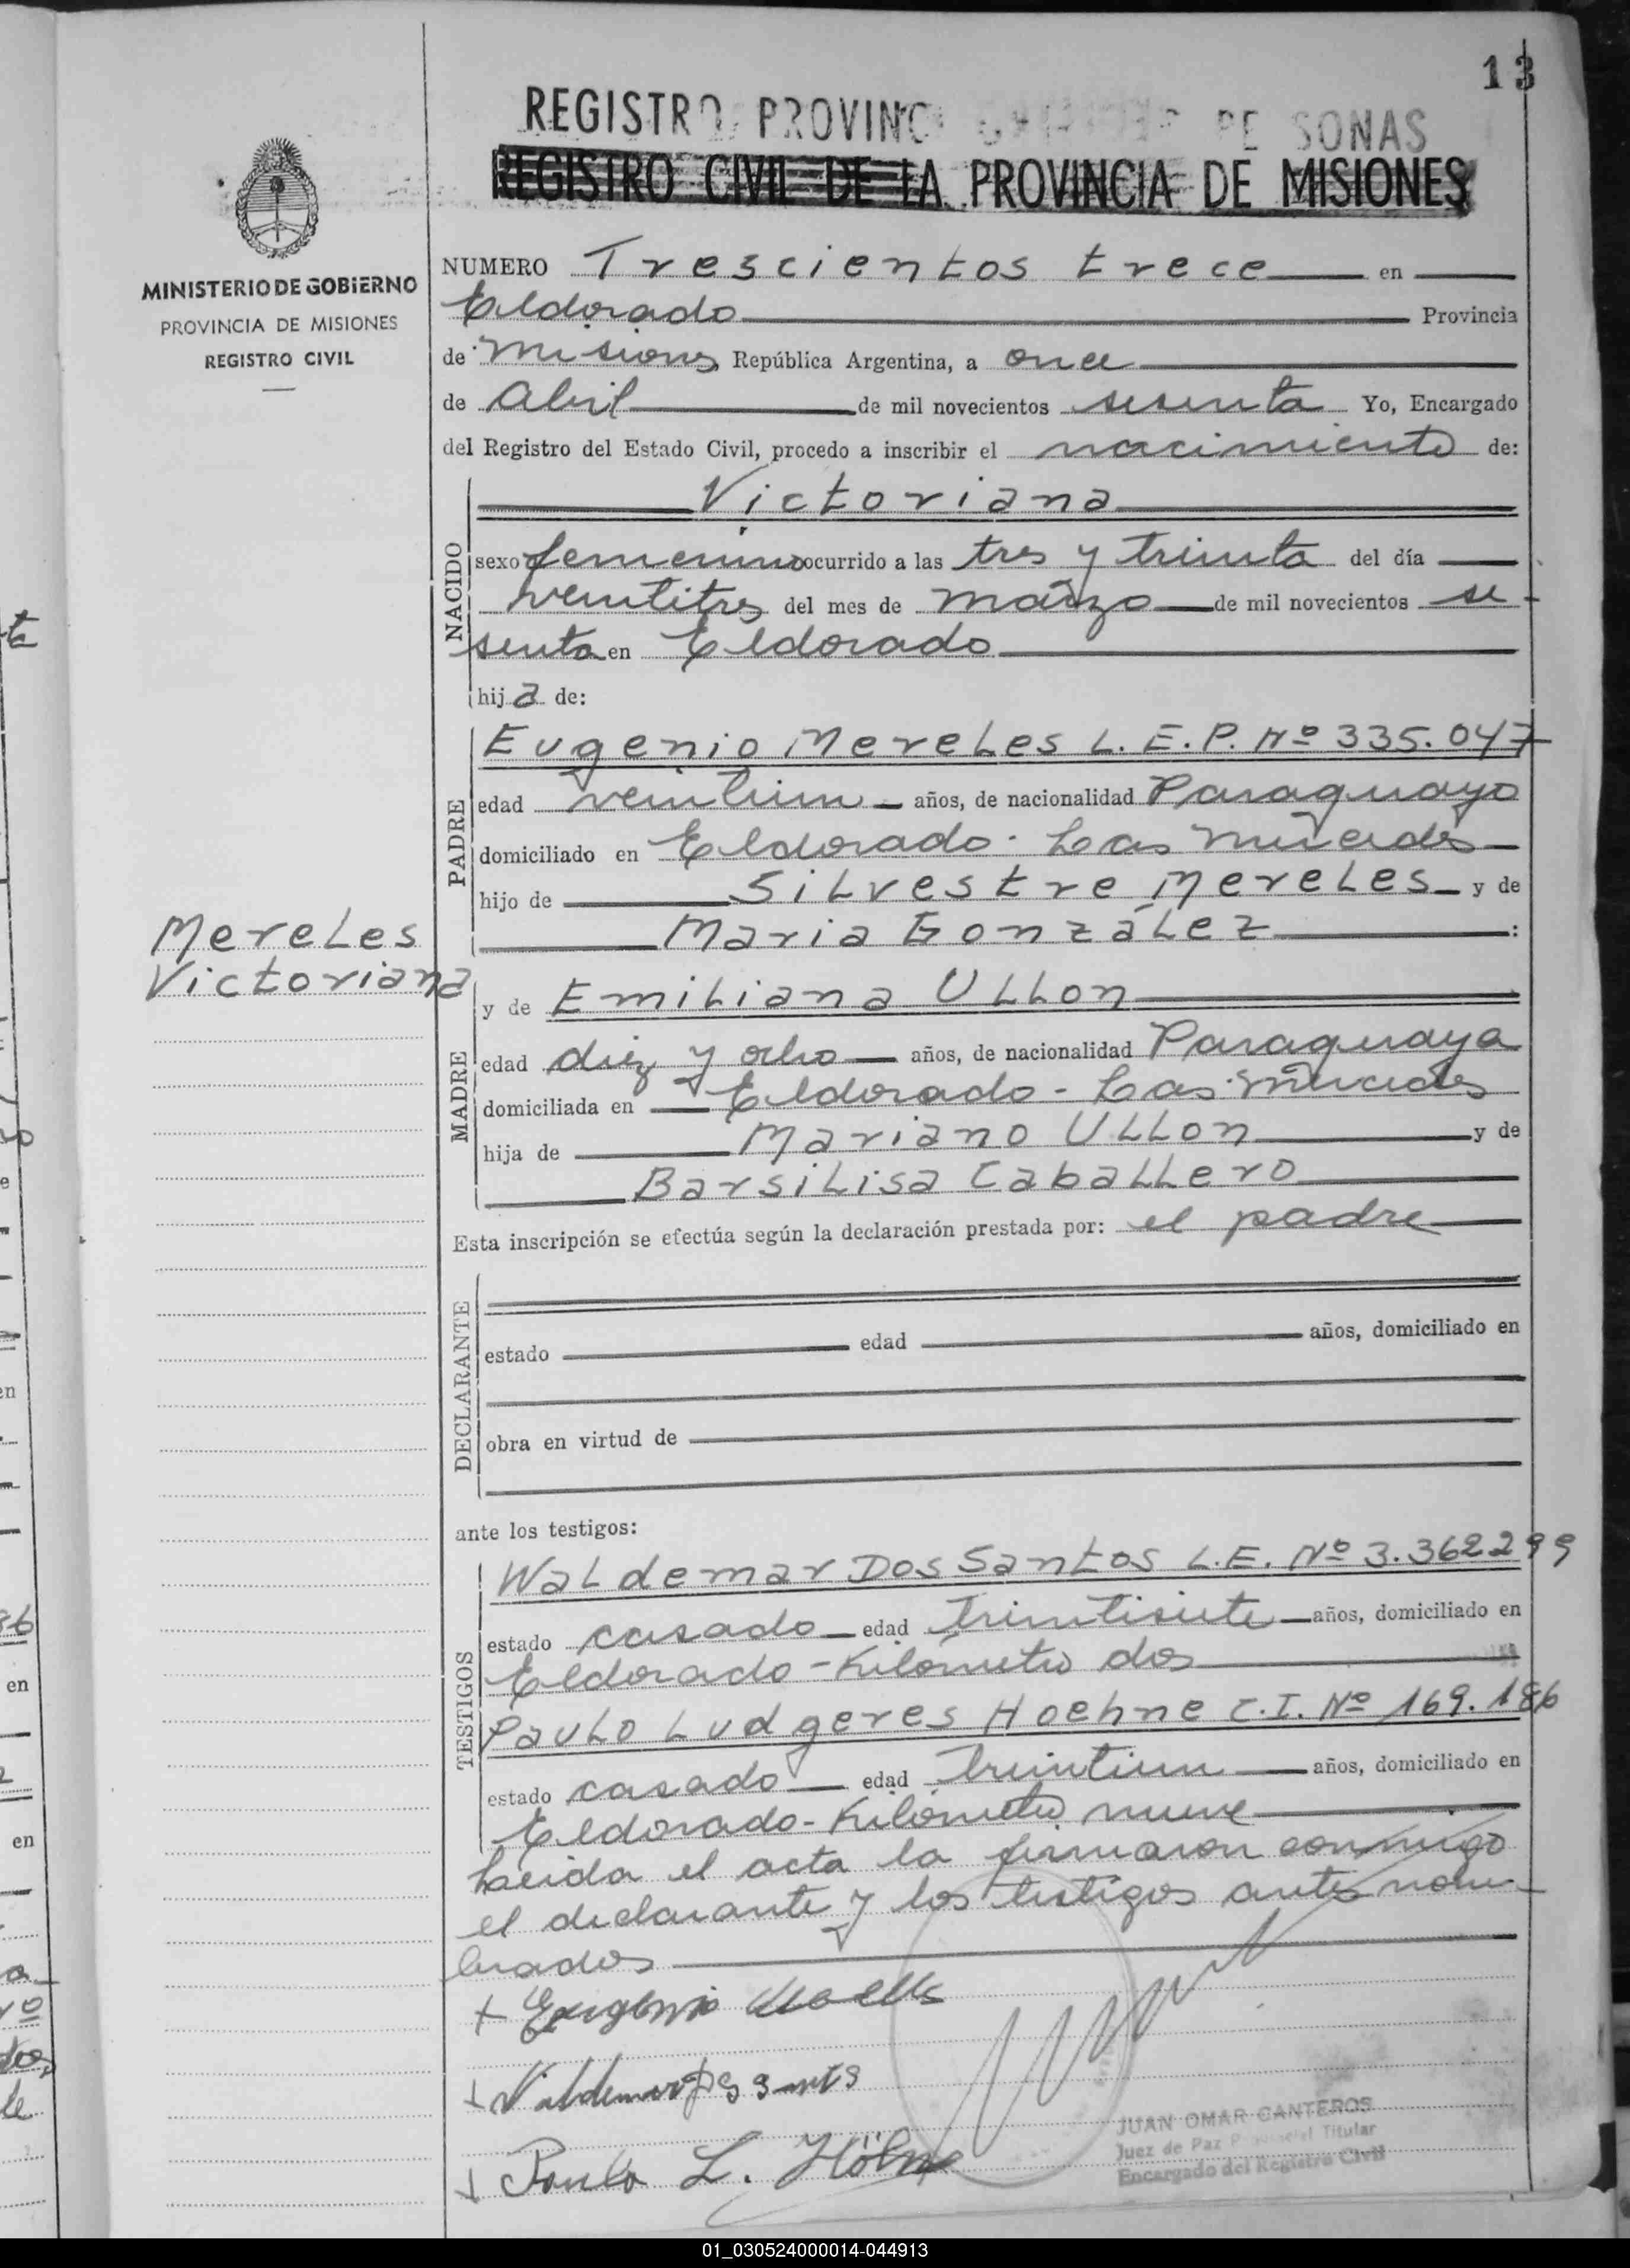 13
REGISTRO PROVINC PE SONAS
REGISTRO CIVIL DE LA PROVINCIA DE MISIONES
MINISTERIO DE GOBIERNO
PROVINCIA DE MISIONES
REGISTRO CIVIL
NUMERO Trescientos trece en
Eldorado Provincia
de Misiones República Argentina, a once
de Abril de mil novecientos sesenta Yo, Encargado
del Registro del Estado Civil, procedo a inscribir el nacimiento de:
NACIDO
Victoriana
sexo femenino ocurrido a las tres y treinta del día
veintitres del mes de marzo de mil novecientos se-
senta en Eldorado
hija de:
PADRE
Eugenio Mereles L.E.P. Nº 335.047
edad veintiun años, de nacionalidad Paraguayo
domiciliado en Eldorado - Las Mercedes
hijo de Silvestre Mereles y de
Maria González :
Mereles
Victoriana
MADRE
y de Emiliana Ullon
edad diez y ocho años, de nacionalidad Paraguaya
domiciliada en Eldorado - Las Mercedes
hija de Mariano Ullon y de
Barsilisa Caballero
Esta inscripción se efectúa según la declaración prestada por: el padre
DECLARANTE
estado edad años, domiciliado en
obra en virtud de
ante los testigos:
TESTIGOS
Waldemar Dos Santos L.E. Nº 3.362299
estado casado edad treintisiete años, domiciliado en
Eldorado - Kilómetro dos
Paulo Ludgeres Hoehne C.I. Nº 169.186
estado casado edad treintiun años, domiciliado en
Eldorado - Kilómetro nueve
Leida el acta la firmaron conmigo
el declarante y los testigos antes nom-
brados
+ Eugenio
+ Valdemar Dos Santos
+ Paulo L. Höhne
JUAN OMAR CANTEROS
Juez de Paz Provincial Titular
Encargado del Registro Civil
01_030524000014-044913